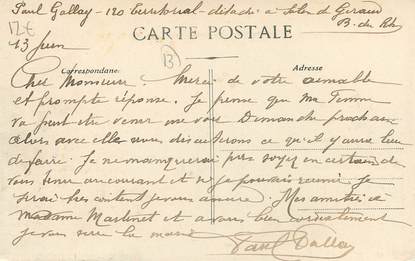 Paul Gallay - 120 Territorial - détaché à Salon d Giraud
B. du Rh
12€
13 Juin
CARTE POSTALE
B
Correspondance
Adresse
Cher Monsieur. Merci de votre aimable
et prompte réponse. Je pense que ma femme
va peut être venir me voir Dimanche prochain
alors avec elle nous discuterons ce qu'il y aura lieu
de faire. Je ne manquerai pas soyez en certain de
vous tenir au courant et si je pouvais réussir je
serai très content je vous assure. Mes amitiés à
Madame Martinet et à vous bien cordialement
je vous serre la main
Paul Gallay